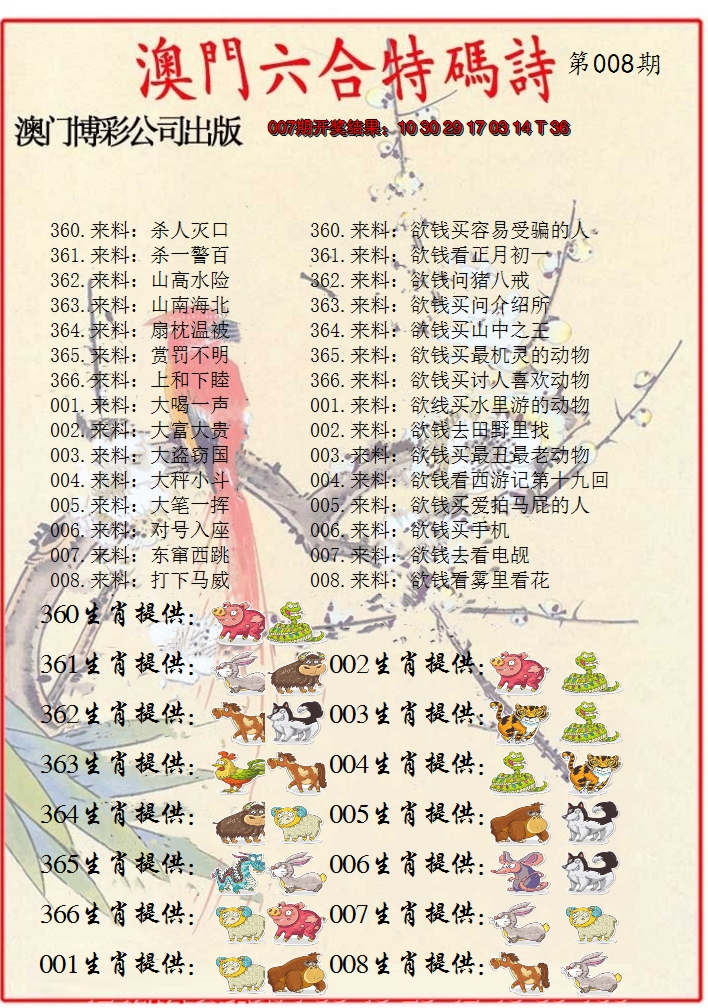 澳門六合特碼詩 第008期
澳门博彩公司出版 007期开奖结果：10 30 29 17 03 14 T 36
360.来料：杀人灭口 360.来料：欲钱买容易受骗的人
361.来料：杀一警百 361.来料：欲钱看正月初一
362.来料：山高水险 362.来料：欲钱问猪八戒
363.来料：山南海北 363.来料：欲钱买问介绍所
364.来料：扇枕温被 364.来料：欲钱买山中之王
365.来料：赏罚不明 365.来料：欲钱买最机灵的动物
366.来料：上和下睦 366.来料：欲钱买讨人喜欢动物
001.来料：大喝一声 001.来料：欲线买水里游的动物
002.来料：大富大贵 002.来料：欲钱去田野里找
003.来料：大盗窃国 003.来料：欲钱买最丑最老动物
004.来料：大秤小斗 004.来料：欲钱看西游记第十九回
005.来料：大笔一挥 005.来料：欲钱买爱拍马屁的人
006.来料：对号入座 006.来料：欲钱买手机
007.来料：东窜西跳 007.来料：欲钱去看电觇
008.来料：打下马威 008.来料：欲钱看雾里看花
360生肖提供：
361生肖提供： 002生肖提供：
362生肖提供： 003生肖提供：
363生肖提供： 004生肖提供：
364生肖提供： 005生肖提供：
365生肖提供： 006生肖提供：
366生肖提供： 007生肖提供：
001生肖提供： 008生肖提供：